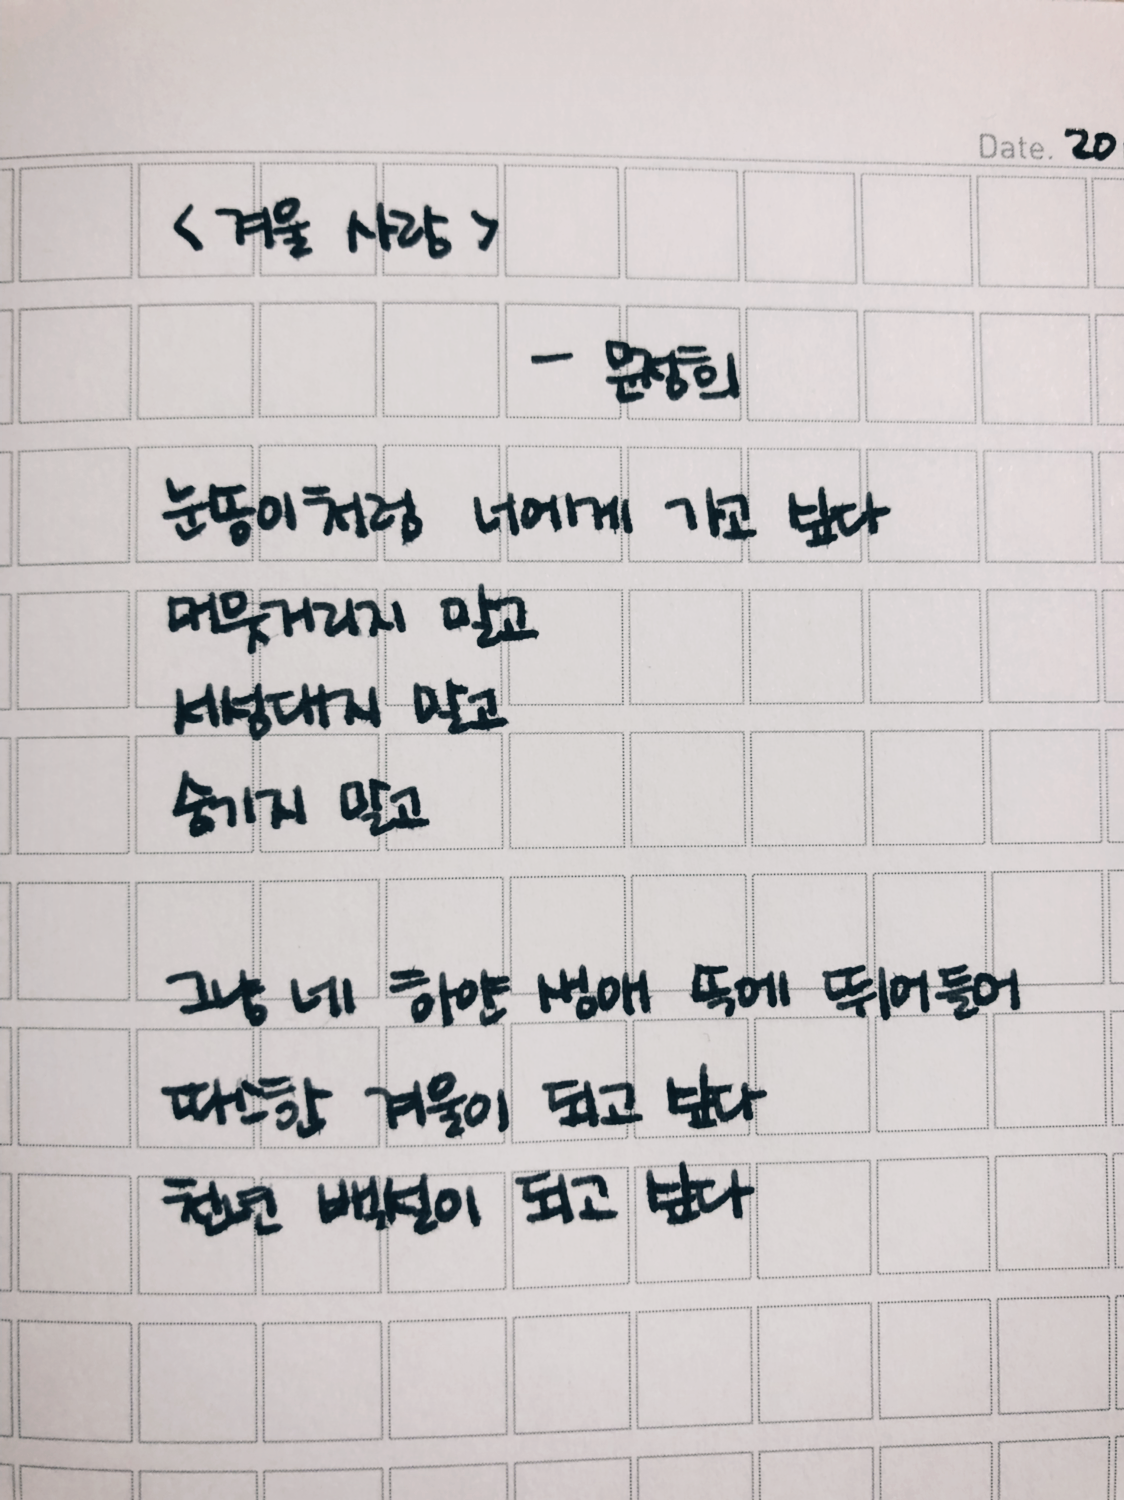 Date. 20
<겨울 사랑>
- 문정희
눈송이처럼 너에게 가고 싶다
머뭇거리지 말고
서성대지 말고
숨기지 말고
그냥 네 하얀 생애 속에 뛰어들어
따스한 겨울이 되고 싶다
천년 백설이 되고 싶다